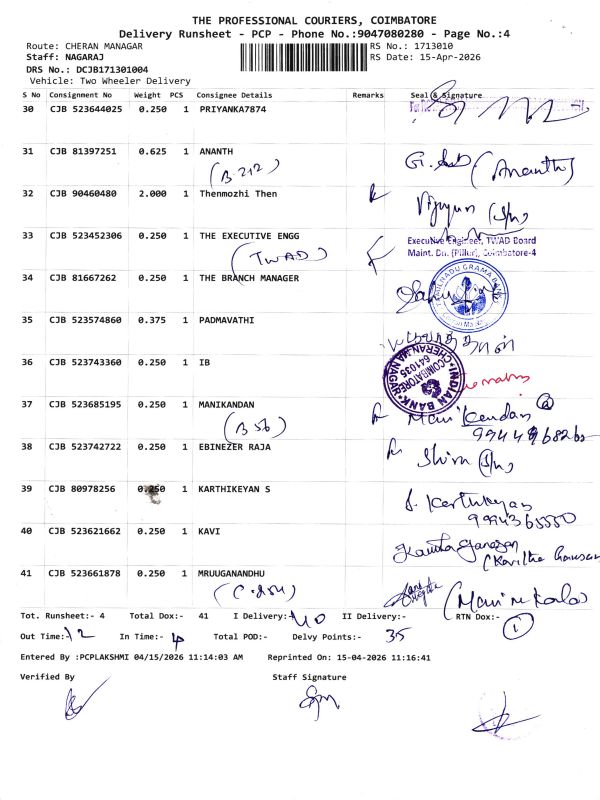 THE PROFESSIONAL COURIERS, COIMBATORE
Delivery Runsheet - PCP - Phone No.:9047080280 - Page No.:4
Route: CHERAN MANAGAR
RS No.: 1713010
Staff: NAGARAJ
RS Date: 15-Apr-2026
DRS No.: DCJB171301004
Vehicle: Two Wheeler Delivery
S No Consignment No Weight PCS Consignee Details Remarks Seal & Signature
30 CJB 523644025 0.250 1 PRIYANKA7874
31 CJB 81397251 0.625 1 ANANTH
(B-212) (Ananth)
32 CJB 90460480 2.000 1 Thenmozhi Then
33 CJB 523452306 0.250 1 THE EXECUTIVE ENGG
(TWAD)
Executive Engineer, TWAD Board
Maint. Dn. (Pillur), Coimbatore-4
34 CJB 81667262 0.250 1 THE BRANCH MANAGER
TAMILNADU GRAMA BANK
35 CJB 523574860 0.375 1 PADMAVATHI
36 CJB 523743360 0.250 1 IB
INDIAN BANK
CHERAN MA NAGAR
COIMBATORE
641035
37 CJB 523685195 0.250 1 MANIKANDAN
(B 56) Manikandan
38 CJB 523742722 0.250 1 EBINEZER RAJA
Shiva
39 CJB 80978256 0.250 1 KARTHIKEYAN S
S. Karthikeyan
9994365550
40 CJB 523621662 0.250 1 KAVI
41 CJB 523661878 0.250 1 MRUUGANANDHU
Tot. Runsheet:- 4 Total Dox:- 41 I Delivery:- 40 II Delivery:- RTN Dox:- 1
Out Time:- 12 In Time:- 4 Total POD:- Delvy Points:- 35
Entered By :PCPLAKSHMI 04/15/2026 11:14:03 AM Reprinted On: 15-04-2026 11:16:41
Verified By Staff Signature